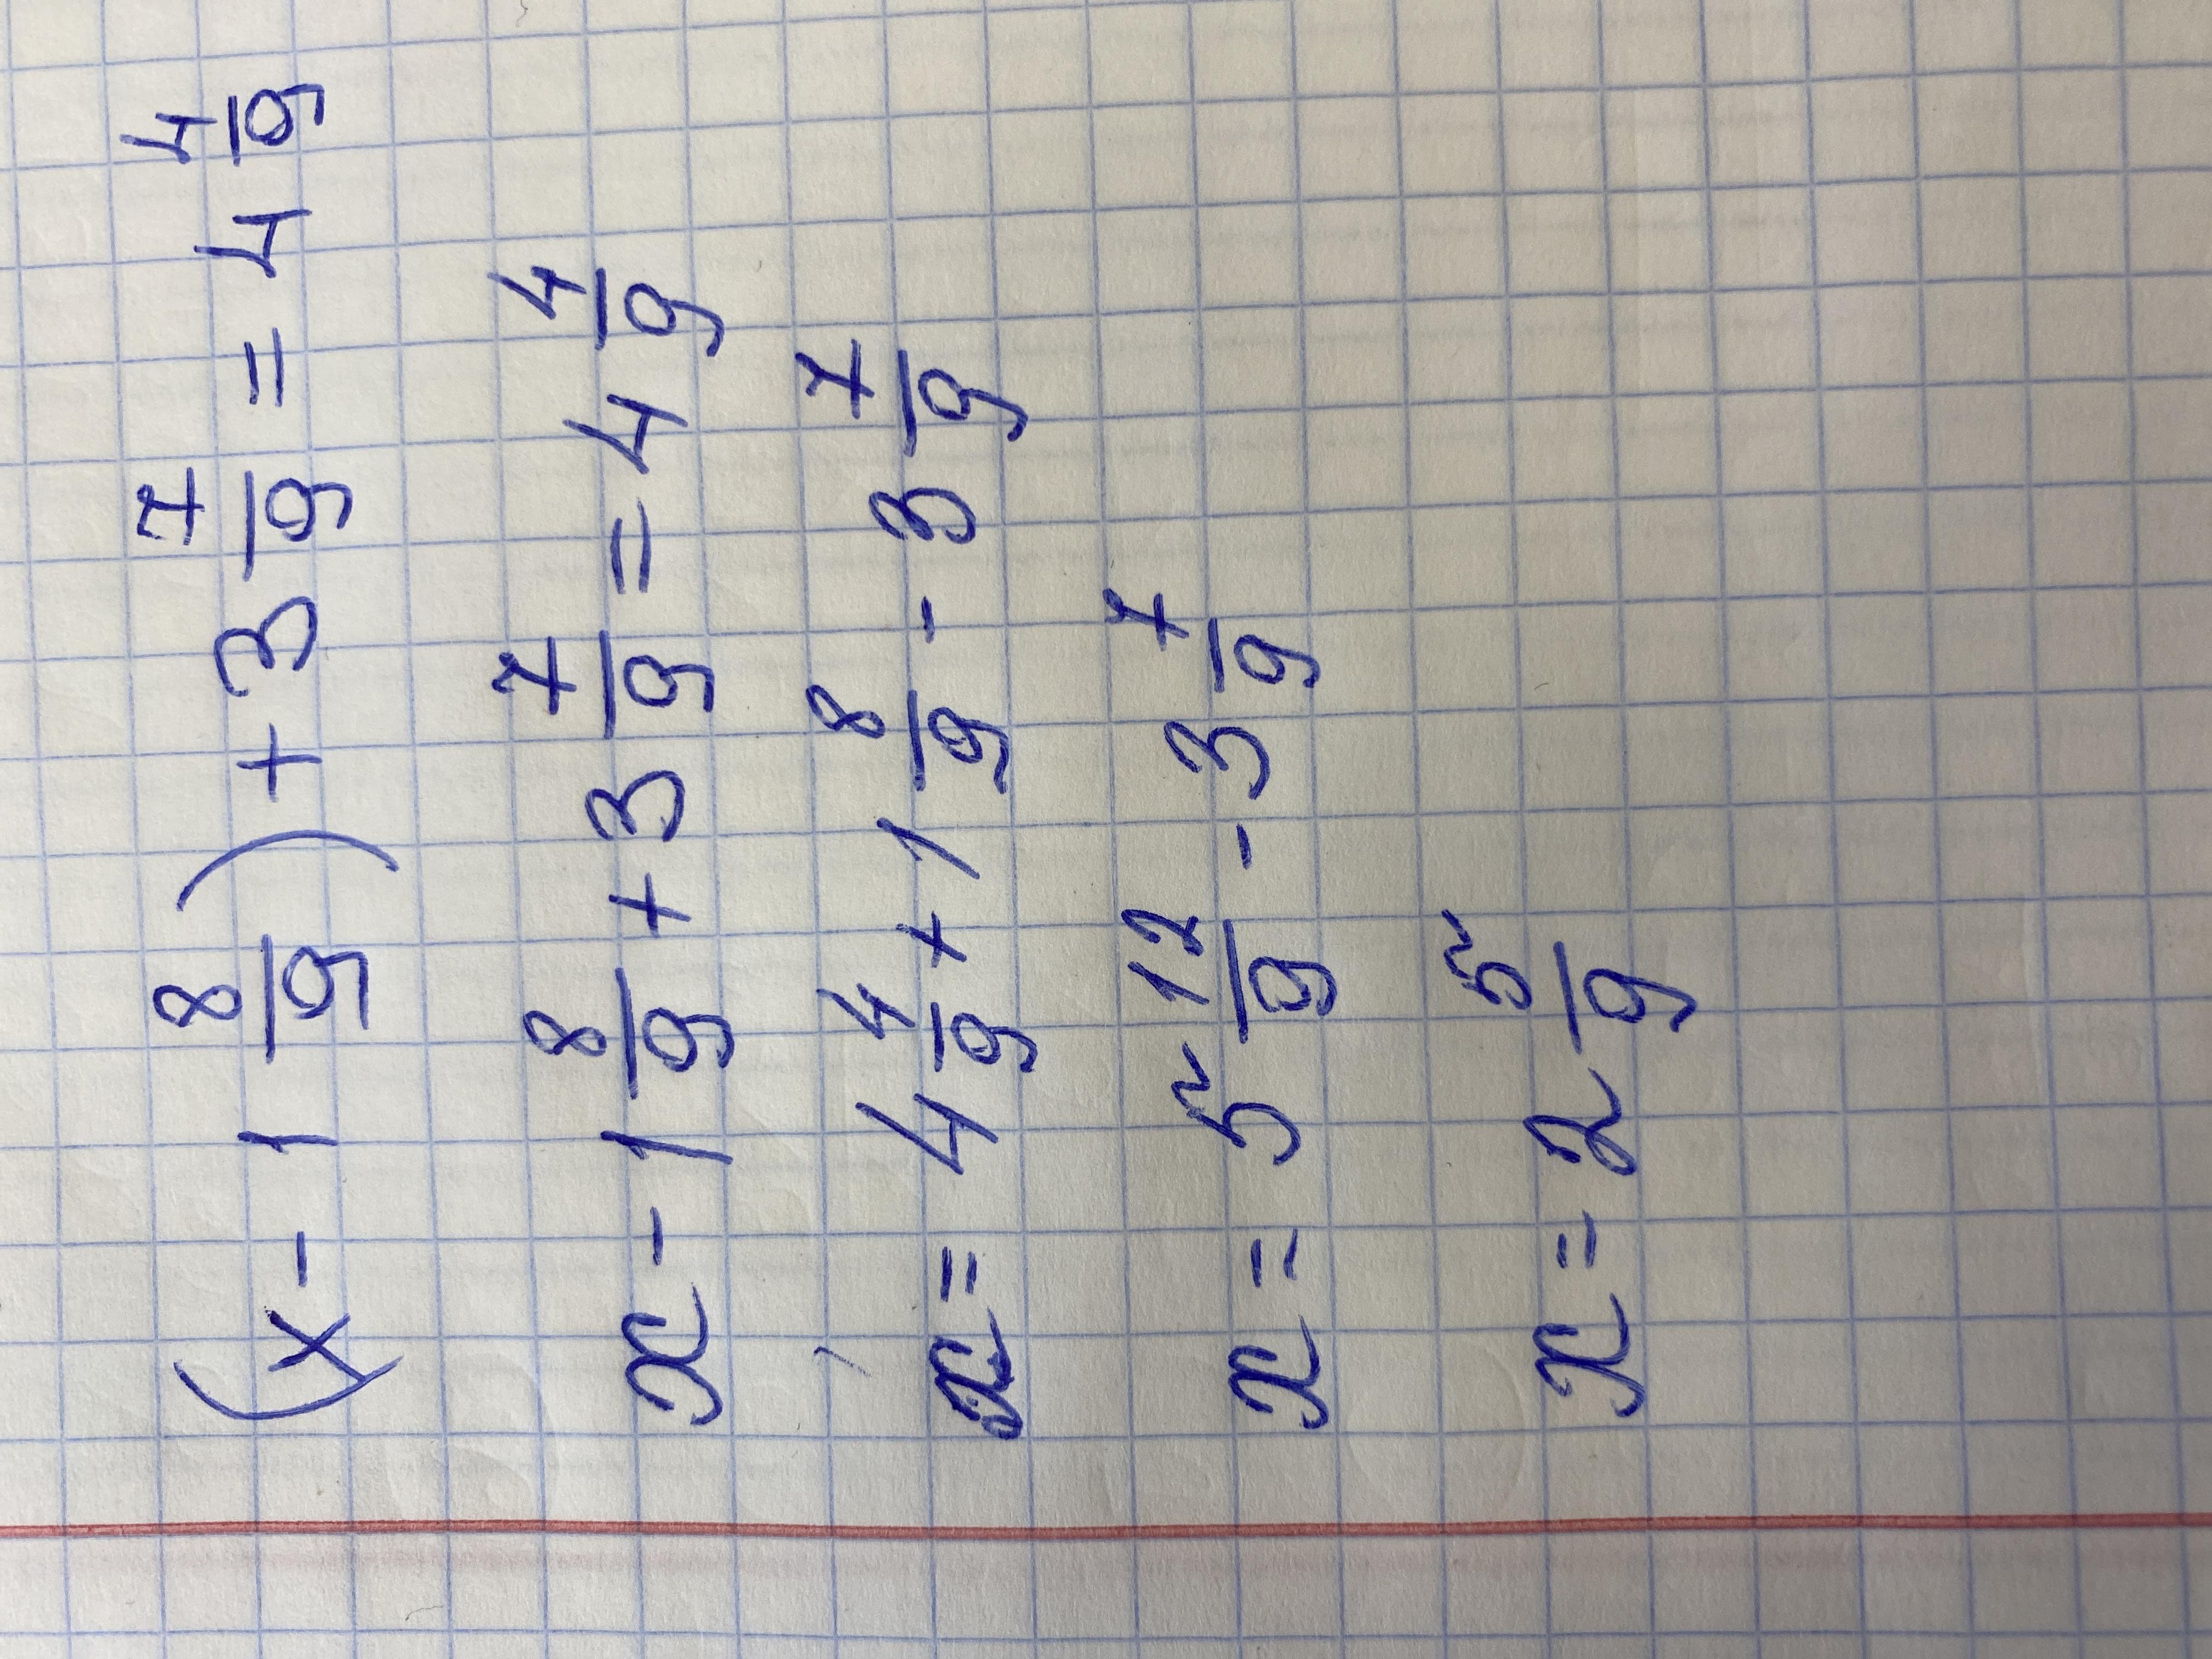 (x - 1 8/9) + 3 7/9 = 4 4/9
x - 1 8/9 + 3 7/9 = 4 4/9
x = 4 4/9 + 1 8/9 - 3 7/9
x = 5 12/9 - 3 7/9
x = 2 5/9